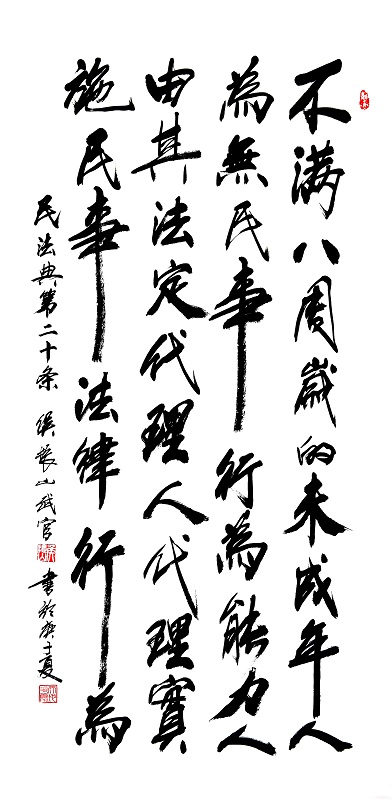 不满八周歲的未成年人
為無民事行為能力人
由其法定代理人代理實
施民事法律行為
民法典第二十条 書於庚子夏